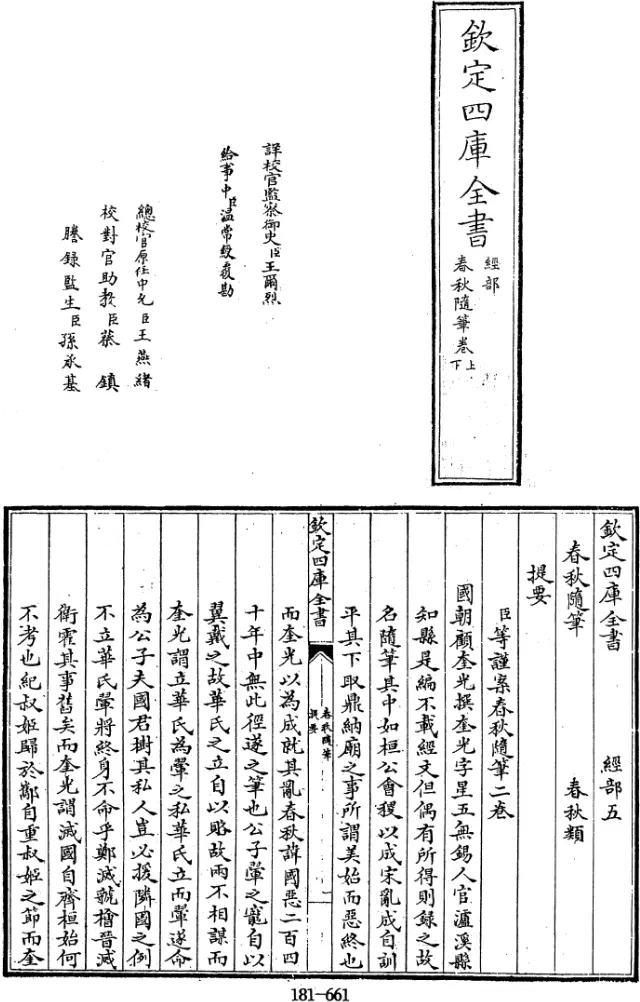 欽定四庫全書
經部
春秋隨筆卷上下
詳校官監察御史臣王爾烈
給事中臣溫常綬覆勘
總校官原任中允臣王燕緒
校對官助教臣蔡鎮
謄錄監生臣孫承基
欽定四庫全書 經部五
春秋隨筆 春秋類
提要
臣等謹案春秋隨筆二卷
國朝顧奎光撰奎光字星五無錫人官瀘溪縣
知縣是編不載經文但偶有所得則録之故
名隨筆其中如桓公會稷以成宋亂成自訓
平其下取鼎納廟之事所謂美始而惡終也
欽定四庫全書
春秋隨筆
提要
一
而奎光以為成就其亂春秋諱國惡二百四
十年中無此徑遂之筆也公子翬之寵自以
翼戴之故華氏之立自以賂故兩不相謀而
奎光謂立華氏為翬之私華氏立而翬遂命
為公子夫國君樹其私人豈必援隣國之例
不立華氏翬將終身不命乎鄭滅虢檜晉滅
衛霍其事舊矣而奎光謂滅國自齊桓始何
不考也紀叔姬歸於酅自重叔姬之節而奎
181-661